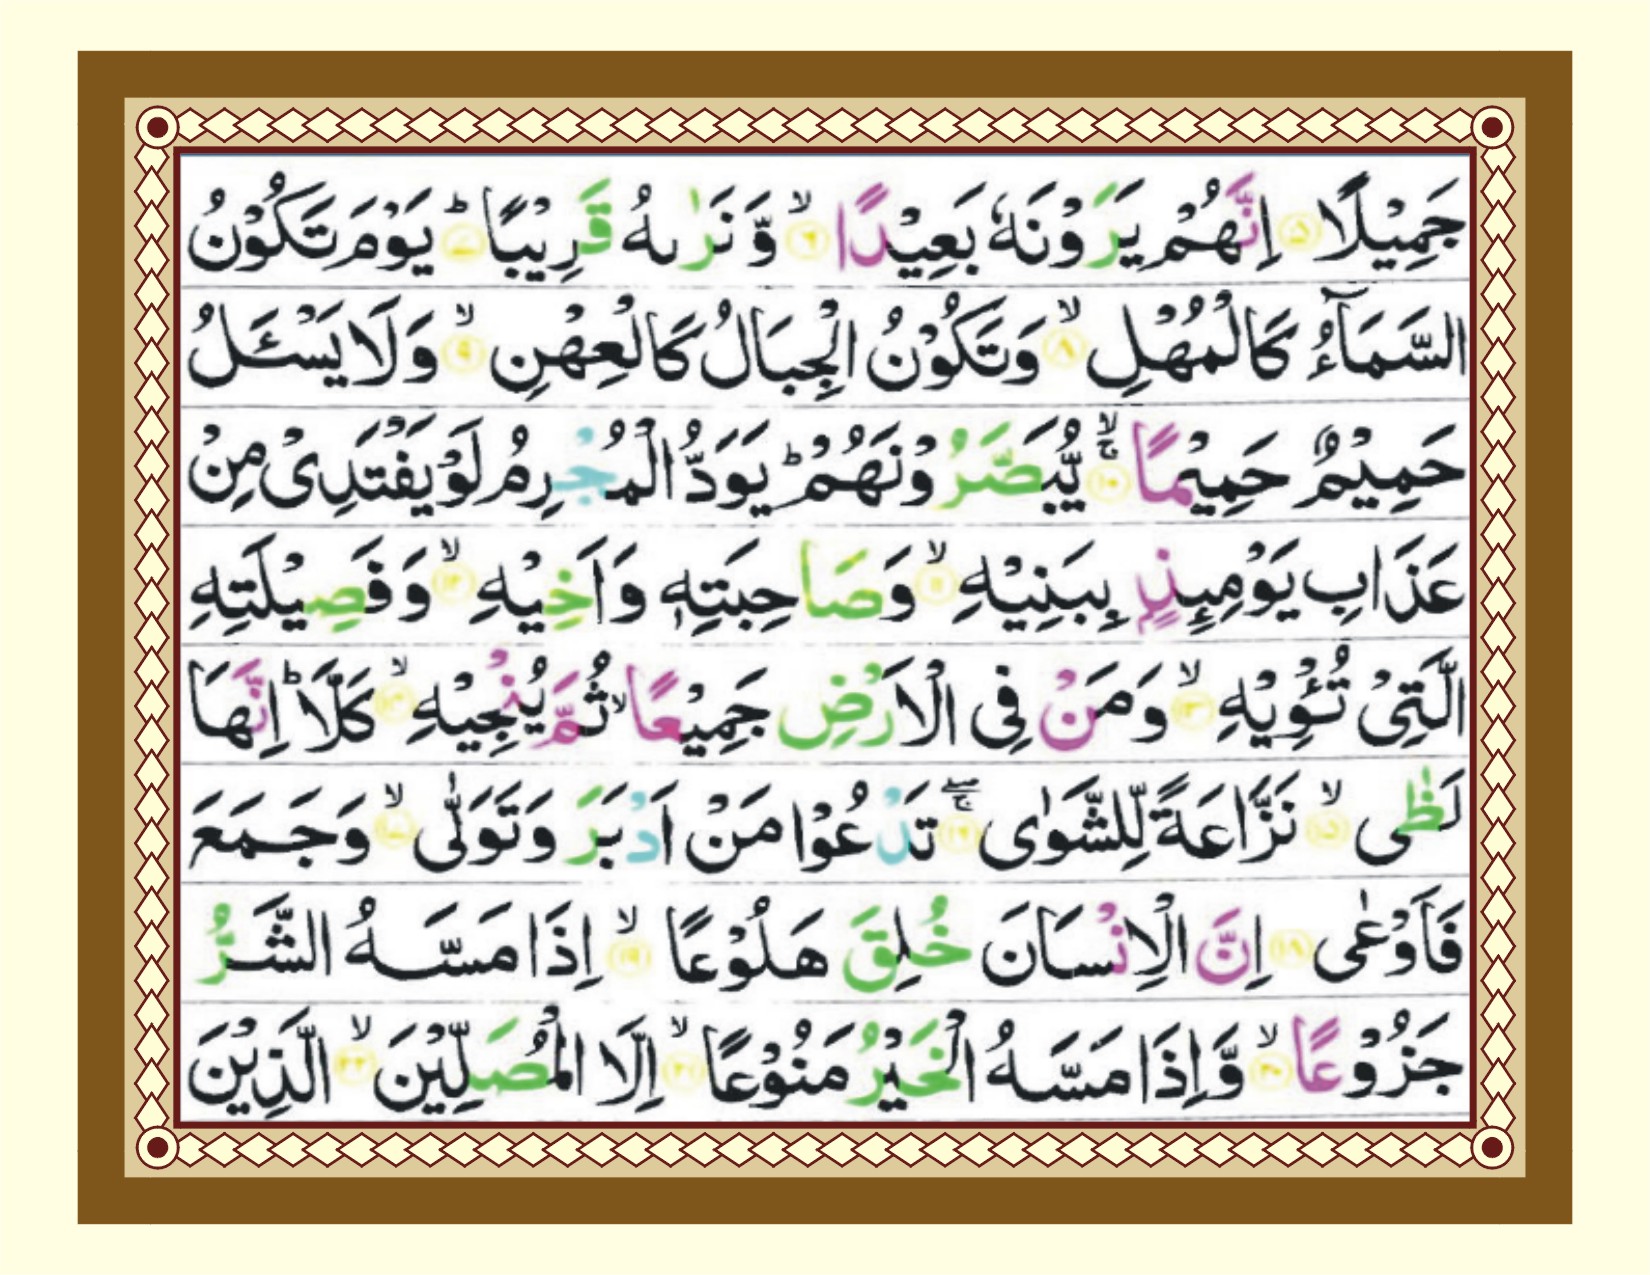 جَمِيْلًا ۝۵ اِنَّهُمْ يَرَوْنَهٗ بَعِيْدًا ۙ۝۶ وَّ نَرٰىهُ قَرِيْبًا ؕ۝۷ يَوْمَ تَكُوْنُ
السَّمَآءُ كَالْمُهْلِ ۙ۝۸ وَتَكُوْنُ الْجِبَالُ كَالْعِهْنِ ۙ۝۹ وَلَا يَسْـَٔلُ
حَمِيْمٌ حَمِيْمًا ۚۖ۝۱۰ يُّبَصَّرُوْنَهُمْ ؕ يَوَدُّ الْمُجْرِمُ لَوْ يَفْتَدِىْ مِنْ
عَذَابِ يَوْمِئِذٍۭ بِبَنِيْهِ ۙ۝۱۱ وَصَاحِبَتِهٖ وَاَخِيْهِ ۙ۝۱۲ وَفَصِيْلَتِهِ
الَّتِىْ تُـْٔوِيْهِ ۙ۝۱۳ وَمَنْ فِى الْاَرْضِ جَمِيْعًا ۙ ثُمَّ يُنْجِيْهِ ۙ۝۱۴ كَلَّا ؕ اِنَّهَا
لَظٰى ۙ۝۱۵ نَزَّاعَةً لِّلشَّوٰى ۚۖ۝۱۶ تَدْعُوْا مَنْ اَدْبَرَ وَتَوَلّٰى ۙ۝۱۷ وَجَمَعَ
فَاَوْعٰى ۝۱۸ اِنَّ الْاِنْسَانَ خُلِقَ هَلُوْعًا ۙ۝۱۹ اِذَا مَسَّهُ الشَّرُّ
جَزُوْعًا ۙ۝۲۰ وَّاِذَا مَسَّهُ الْخَيْرُ مَنُوْعًا ۙ۝۲۱ اِلَّا الْمُصَلِّيْنَ ۙ۝۲۲ الَّذِيْنَ